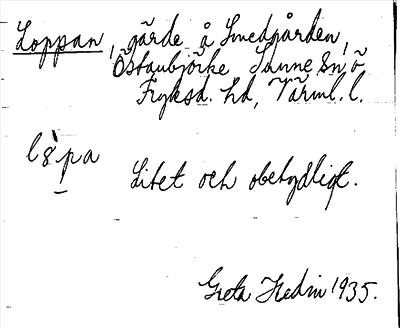 Loppan, gärde å Smedgården,
Östanbjörke Sunne Sn ö
Fryksd. hd, Värml. l.
Litet och obetydligt.
Greta Hedin 1935.